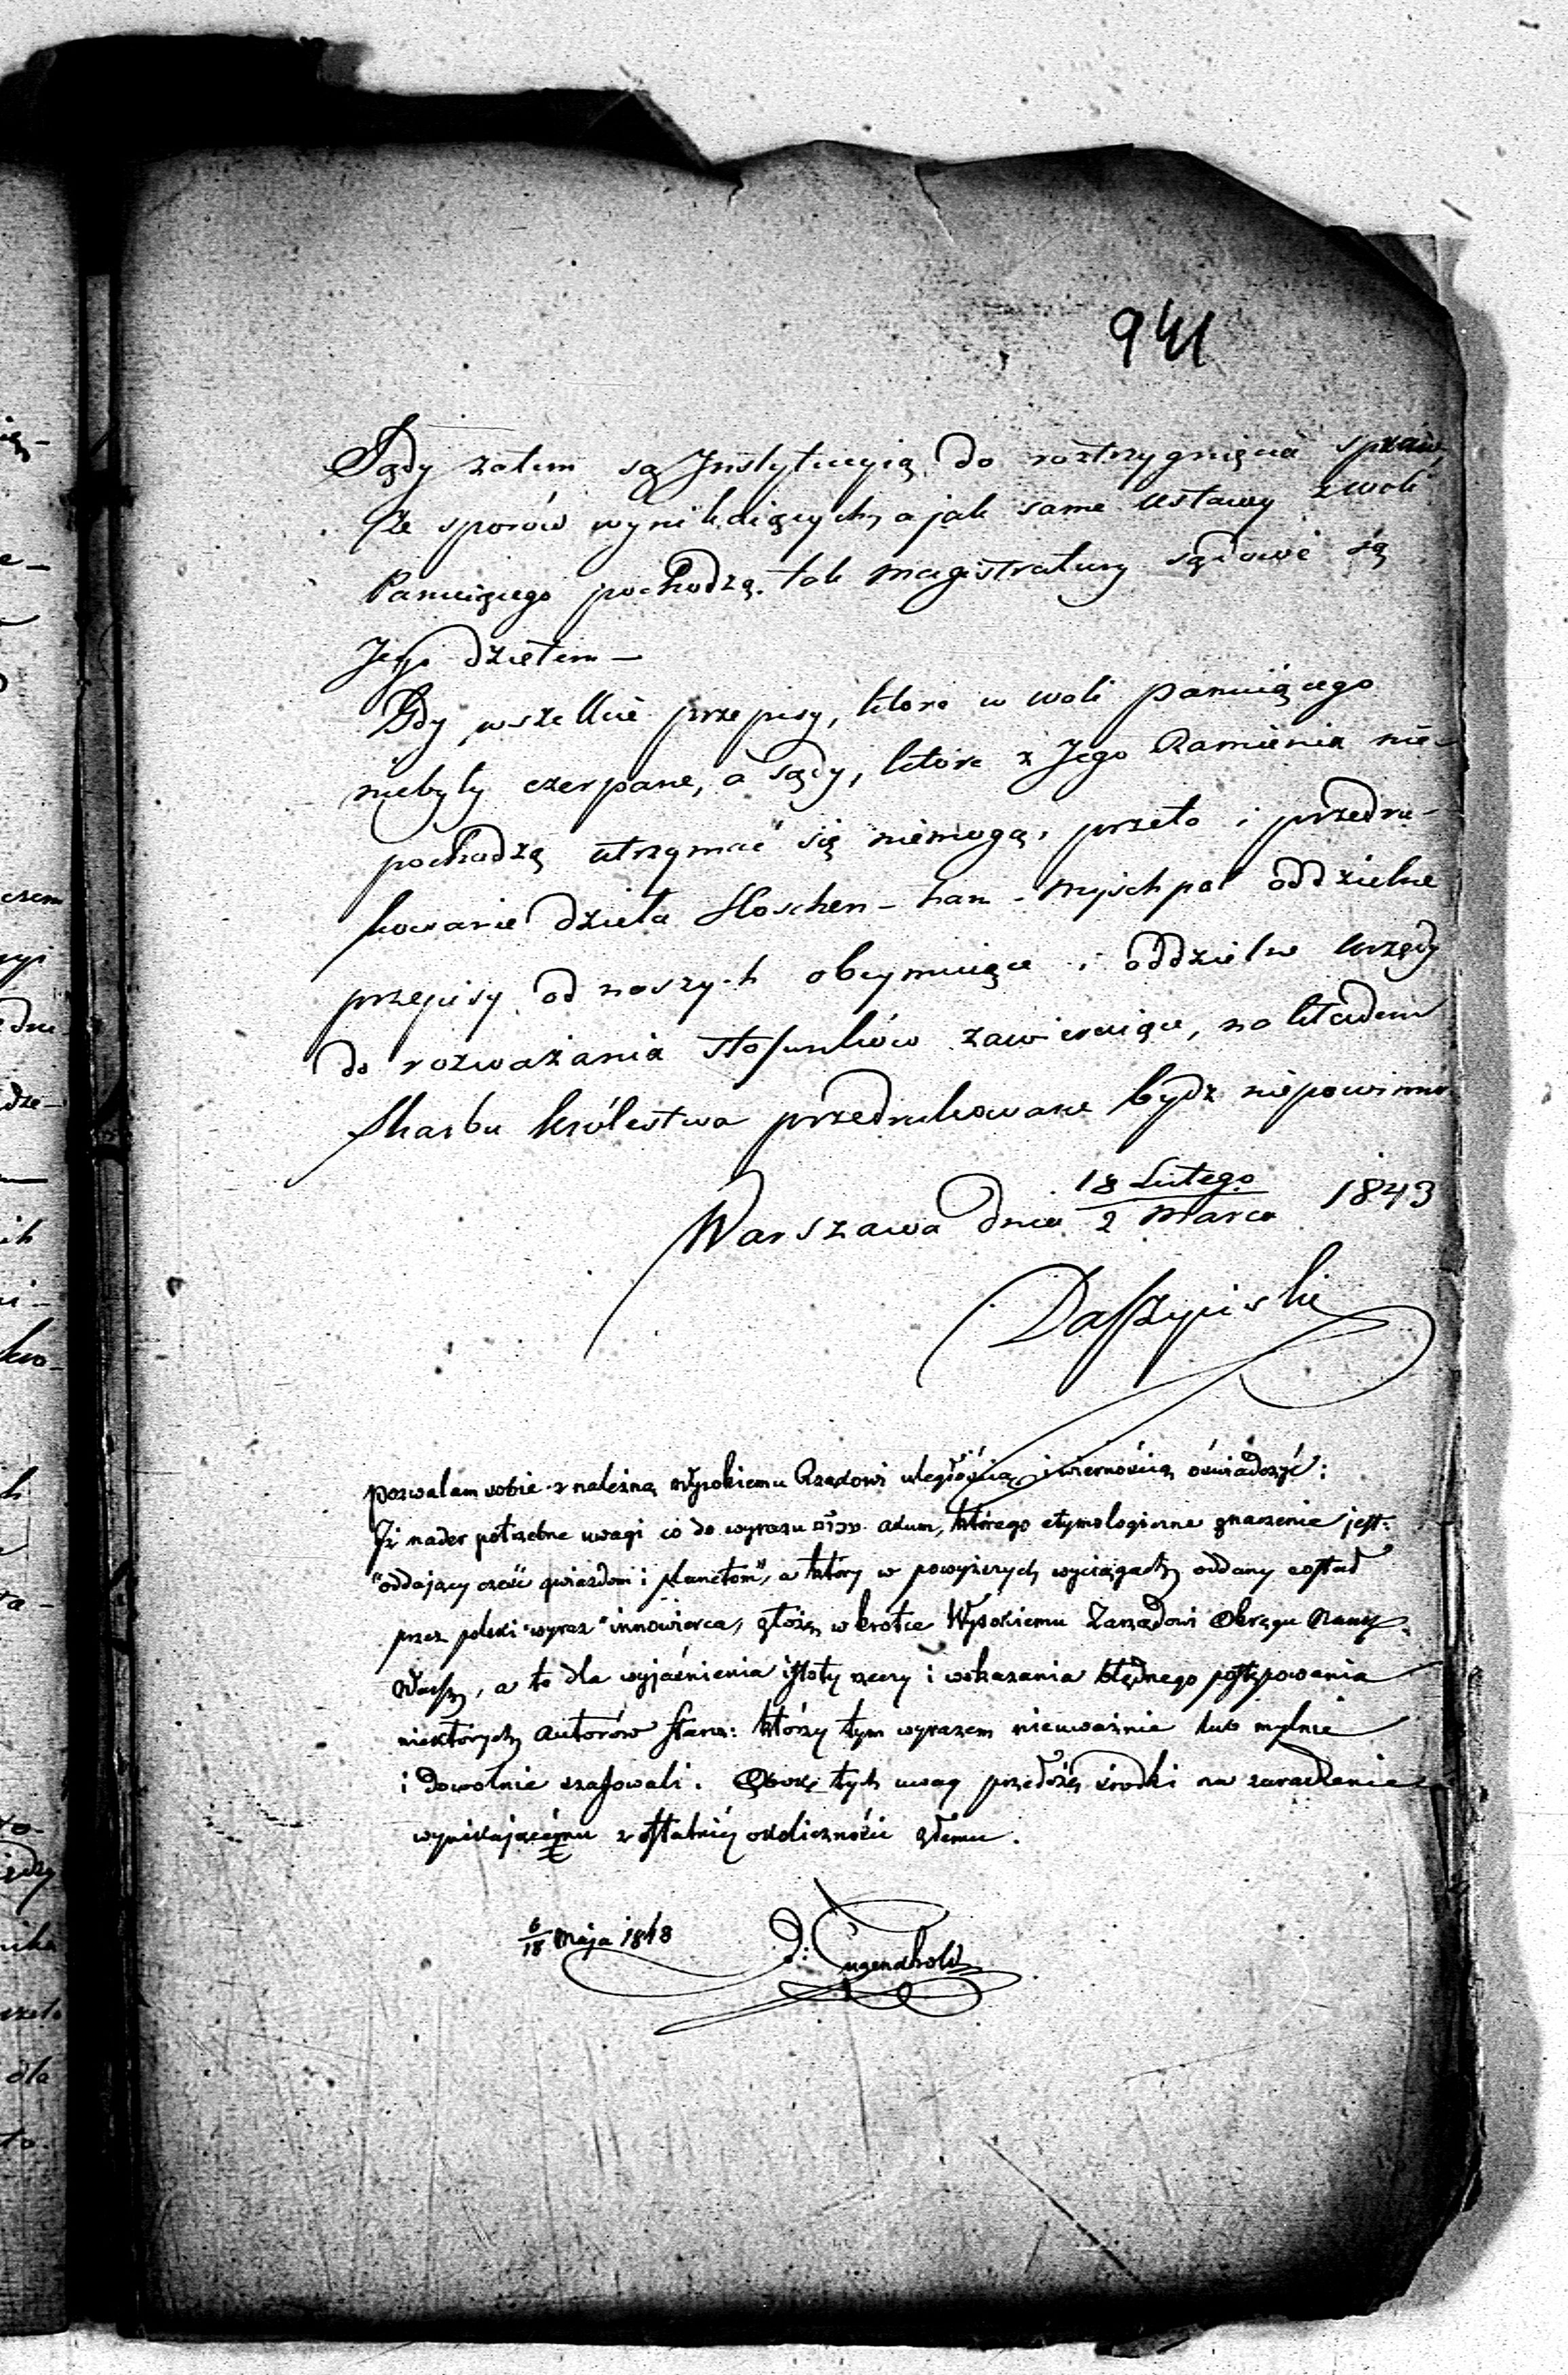 941
Sądy zatem są Instytucyią do roztrzygnięcia spraw,
ze sporów wynikaiących, a jak same ustawy z woli
Panuiącego pochodzą. tak magistratury sądowe są
Jego dziełem —
Gdy wszelkie przepisy, które w woli panuiącego
niebyły czerpane, a sądy, które z Jego Ramienia nie
pochodzą utrzymać się niemogą, przeto i przedru-
kowanie dzieła Hoschen - ham - Mischpat oddzielne
przepisy od naszych obeymuiące i oddzielne urzędy
do rozważania stosunków zawieraiące, na
Skarbu Królestwa przedrukowane bydź niepowinno
Warszawa dnia 18 Lutego / 2 Marca 1843
Pozwalam sobie z należną Wysokiemu Rządowi uległością i wiernością oświadczyć:
Iż nader potrzebne uwagi co do wyrazu עכו״ם akum, którego etymologiczne znaczenie jest:
"oddający cześć gwiazdom i planetom", a który w powyższych wyciągach oddany został
przez polski wyraz "innowierca, złożę w krotce Wysokiemu Zarządowi Okręgu Nauk:
Warsz, a to dla wyjaśnienia istoty rzeczy i wskazania błędnego postępowania
niektórych autorów Staroz: którzy tym wyrazem nieuważnie lub mylnie
i dowolnie szafowali. Obok tych uwag przedłożę środki na zaradzenie
wynikającému z ostatniéj okoliczności złemu.
6/18 Maja 1843 J: Tugendhold